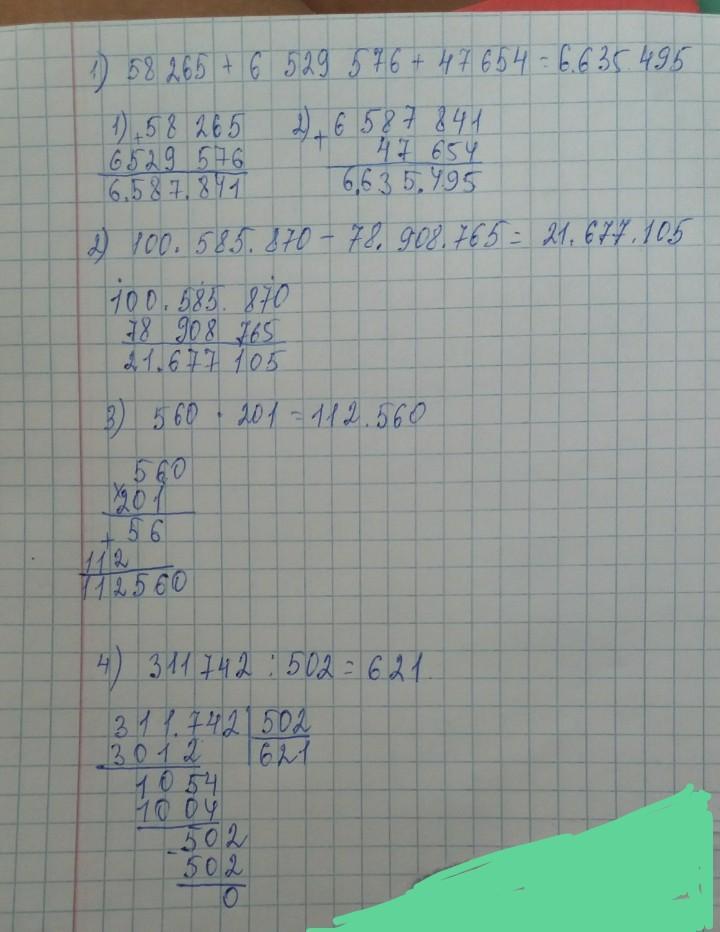 1) 58 265 + 6 529 576 + 47 654 = 6.635.495
1) + 58 265 2) + 6 587 841
6529 576 47 654
6.587.841 6.635.495
2) 100.585.870 - 78.908.765 = 21.677.105
100.585.870
78 908 765
21.677 105
3) 560 · 201 = 112.560
560
× 201
+ 56
112
112560
4) 311742 : 502 = 621.
311.742 502
3012 621
1054
1004
- 502
502
0